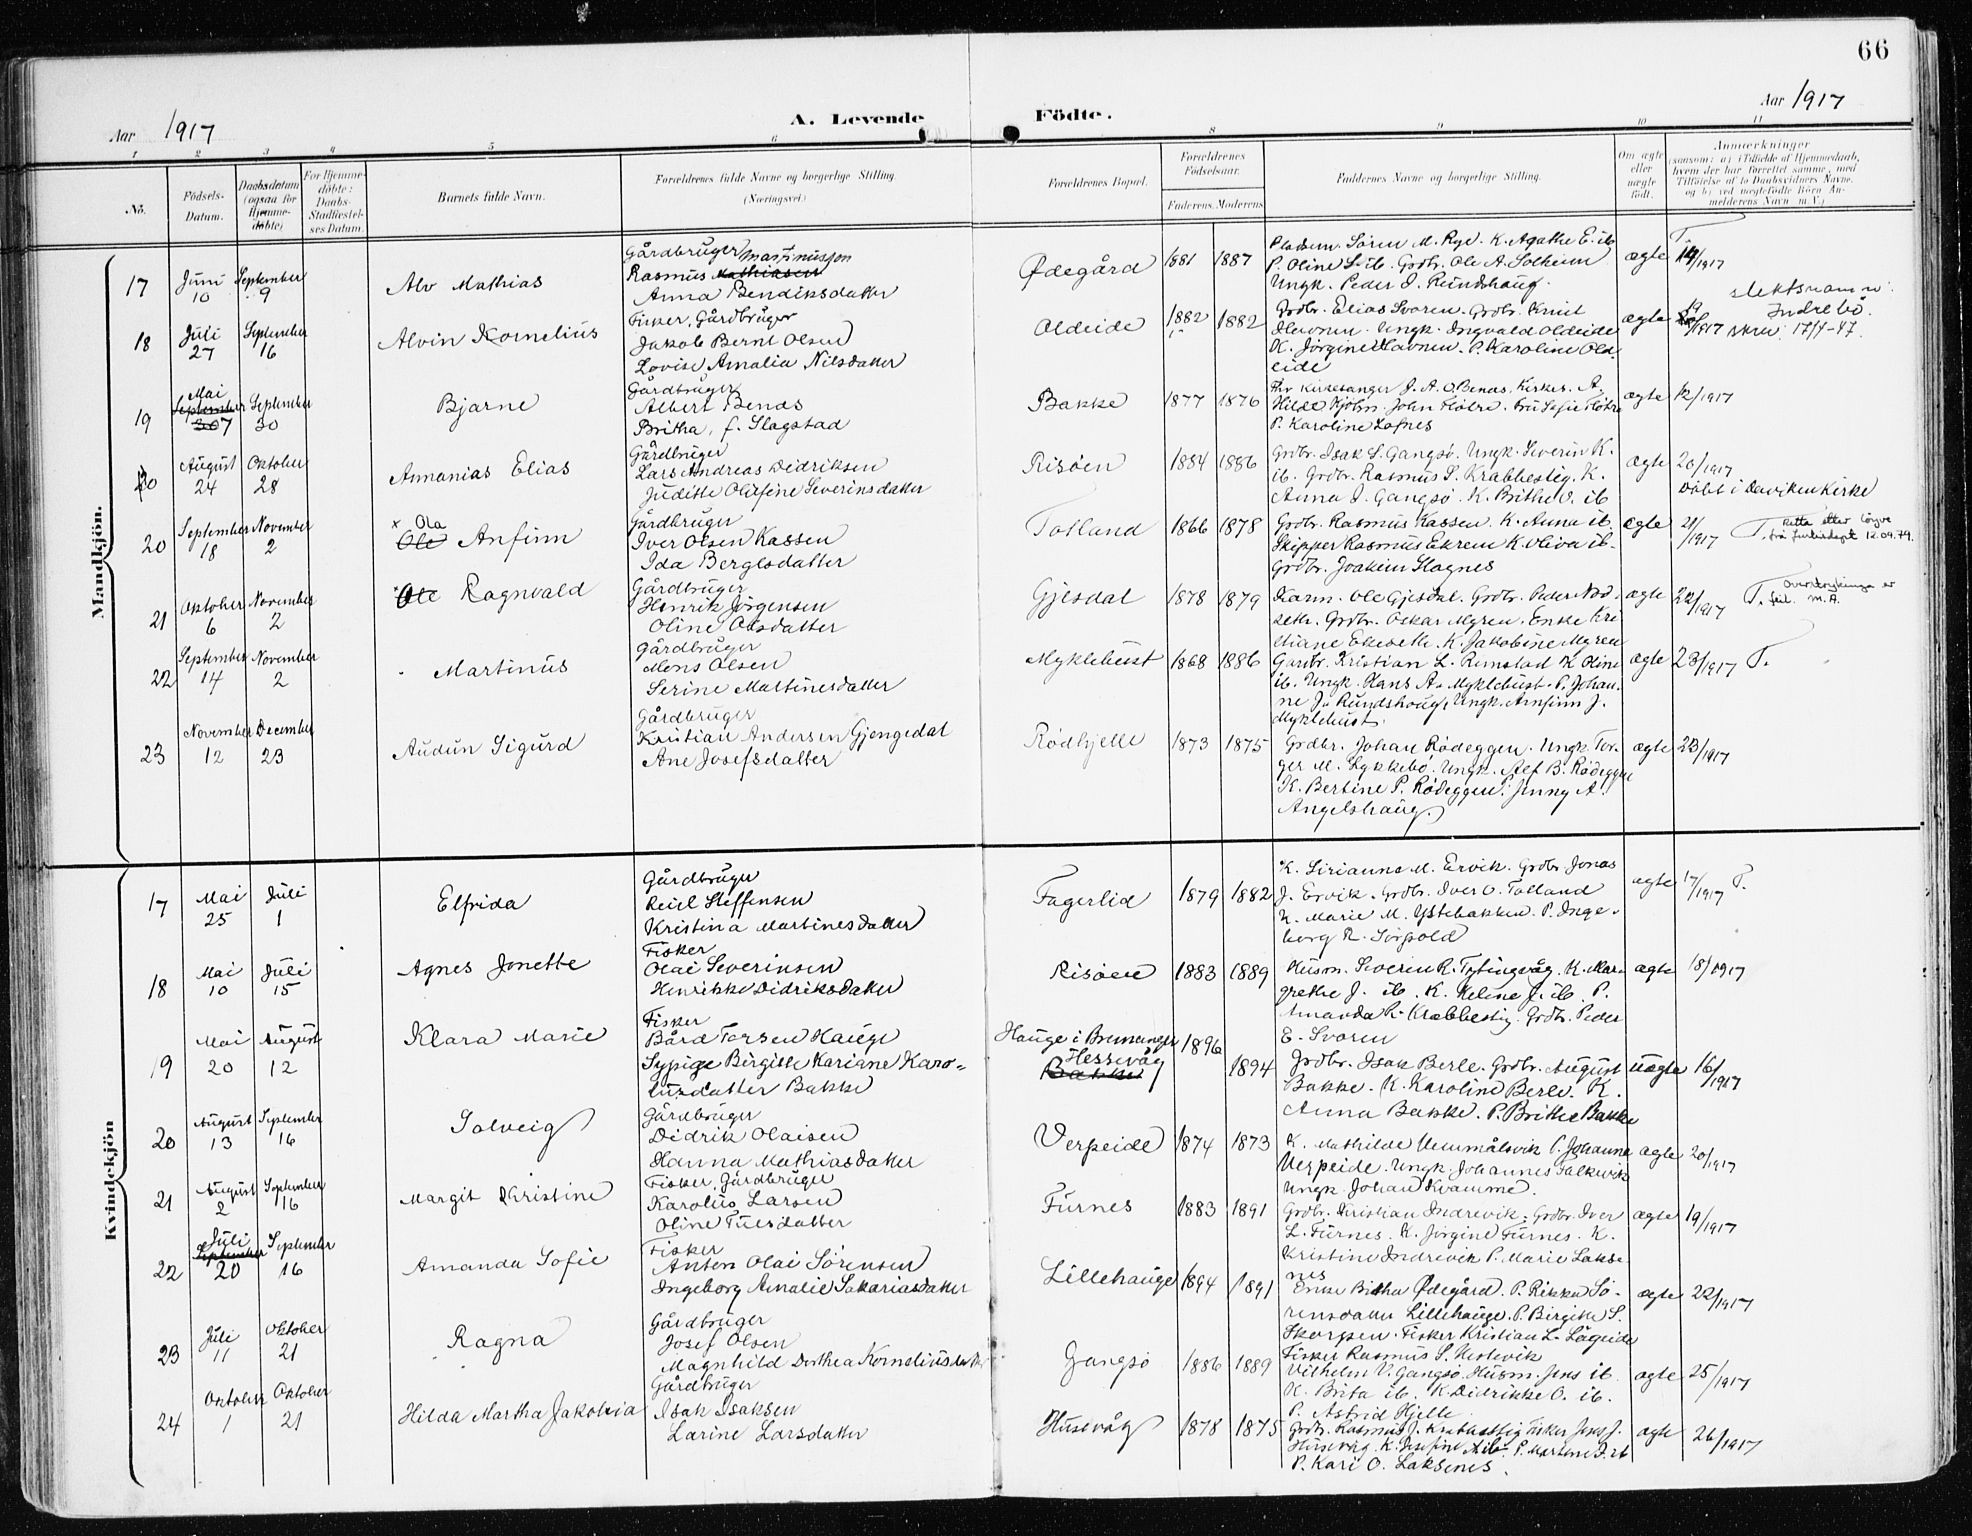 66
Aar 1917
A. Levende Födte.
Aar 1917
1 2 3 4 5 6 8 9 10 11
No.
Födsels-Datum.
Daabsdatum (ogsaa for Hjemme-döbte)
For Hjemme-döbte: Daabs-Stadfæstel-ses Datum.
Barnets fulde Navn.
Forældrenes fulde Navne og borgerlige Stilling. (Næringsvei.)
Forældrenes Bopæl.
Forældrenes Födselsaar.
Faderens. Moderens.
Faddernes Navne og borgerlige Stilling.
Om ægte eller uægte födt.
Anmærkninger
(saasom: a) i Tilfælde af Hjemmedaab,
hvem der har forrettet samme, med
Tilföielse af to Daabsvidners Navne.
og b) ved uægtefödte Börn An-
melderens Navn m.V.)
Mandkjön.
17 Juni 10 September 9 Alv Mathias
Gårdbruger Martinussen
Rasmus Mathiasen
Anna Bendiksdatter
Ødegård 1881 1887
Pladsm. Sören M. Rye. K. Agathe E. ib
P. Oline S. ib. Grdbr. Ole A. Solheim
Ungk. Peder J. Reindshaug.
ægte 14/1917 T.
18 Juli 27 September 16 Alvin Kornelius
Fisker, Gårdbruger
Jakob Bernt Olsen
Lovise Amalia Nilsdatter
Oldeide 1882 1882
Grdbr. Elias Svoren. Grdbr. Knut
Havnen. Ungk. Ingvald Oldeide
K. Jörgine Havnen. P. Karoline Old-
eide
ægte 19/1917
slektsnamn:
Indrebö.
skrei 17/4-47.
19 Mai September 30 7 September 30 Bjarne
Gårdbruger
Albert Benas
Britha, f. Slagstad
Bakke 1877 1876
Fhv Kirkesanger J. A. O. Benas. Kirkes. A.
Hilde Kjölm. John Flöhre. Fru Sofie Flöhre
P. Karoline Lofnes
ægte 12/1917
20 August 24 Oktober 28 Annanias Elias
Gårdbruger
Lars Andreas Didriksen
Juditte Olufine Severinsdatter
Risöen 1884 1886
Grdbr. Isak S. Gangsö. Ungk. Severin K.
ib. Grdbr. Rasmus S. Krabbestig. K.
Anna J. Gangsö. K. Brithe O. ib
ægte 20/1917
Döbt i Daviken Kirke
20 September 18 November 2 × Ola Ole Anfinn
Gårdbruger
Iver Olsen Kassen
Ida Berglsdatter
Totland 1866 1878
Grdbr. Rasmus Kassen. K. Anna ib.
Skipper Rasmus Ekrem K. Oliva ib.
Grdbr. Joakim Slagnes
ægte 21/1917 T. Retta etter löyve
frå Justisdept 12.09.79.
21 Oktober 6 November 2 × Ole Ragnvald
Gårdbruger
Henrik Jörgensen
Oline Olsdatter
Gjesdal 1878 1879
Kaarm. Ole Gjesdal. Grdbr. Peder Nord-
seth. Grdbr. Oskar Myren. Enke Kri
stiane Ekeseth. K. Jakobine Myren
ægte 22/1917 T. Overstrykinga er
feil. M.A.
22 September 14 November 2 Martinus
Gårdbruger
Mons Olsen
Serine Martinesdatter
Myklebust 1868 1886
Gardbr. Kristian L. Rimstad K Oline
ib. Ungk. Hans A. Myklebust. P. Johan-
ne J. Rundshaug, Ungk. Arnfinn J.
Myklebust.
ægte 23/1917 T.
23 November 12 December 23 Audun Sigurd
Gårdbruger
Kristian Andersen Gjengedal
Ane Josefsdatter
Rödhjelle 1873 1875
Grdbr. Johan Rödeggen. Ungk. Tor-
ger M. Lykkebö. Ungk. Alf B. Rödeggen
K. Bertine P. Rödeggen. Jenny A.
Angelshaug.
ægte 23/1917
Kvindekjön
17 Mai 25 Juli 1 Elfrida
Gårdbruger
Reiel Steffensen
Kristina Martinesdatter
Fagerlid 1879 1882
K. Sirianna M. Ervik. Grdbr. Jonas
J. Ervik. Grdbr. Iver O. Totland
K. Marie M. Ystebakken. P. Inge-
borg R. Sörpold
ægte 17/1917 T.
18 Mai 10 Juli 15 Agnes Jonette
Fisker
Olai Severinsen
Henrikke Didriksdatter
Risöen 1883 1889
Husm. Severin R. Tytingvåg. K. Mar-
grethe J. ib. K. Keline J. ib. P.
Amanda R. Krabbestig. Grdbr. Peder
E. Svoren
ægte 18/1917
19 Mai 20 August 12 Klara Marie
Fisker
Bård Torsen Hauge
Sypige Birgitte Kariane Karo-
lusdatter Bakke
Hauge i Bremanger
Hessevåg
Bakke
1896 1894
Grdbr. Isak Berle. Grdbr. August
Bakke. K. Karoline Berle. K.
Anna Bakke. P. Brithe Bakke
uægte 16/1917
20 August 13 September 16 Solveig
Gårdbruger
Didrik Olaisen
Hanna Mathiasdatter
Verpeide 1874 1873
K. Mathilde Hemmålsvik P. Johanna
Verpeide. Ungk. Johannes Falkevik
Ungk. Johan Kvamme.
ægte 20/1917
21 August 2 September 16 Margit Kristine
Fisker, Gårdbruger
Karolus Larsen
Oline Tuesdatter
Furnes 1883 1891
Grdbr. Kristian Indrevik. Grdbr. Iver
L. Furnes. K. Jörgine Furnes. K.
Kristine Indrevik P. Marie Lakse-
nes
ægte 19/1917
22 Juli September 20 September 16 Amanda Sofie
Fisker
Anton Olai Sörensen
Ingeborg Amalie Sakariasdatter
Lillehauge 1894 1891
Enke Britha Ødegård. P. Rikka Sö-
rensdatter Lillehauge. P. Birgitte S.
Skorpen. Fisker Kristian L. Lageide
ægte 22/1917
23 Juli 11 Oktober 21 Ragna
Gårdbruger
Josef Olsen
Magnhild Dorthea Korneliusdatter
Gangsö 1886 1889
Fisker Rasmus S. Nestevik
Vilhelm V. Gangsö. Husm. Jens ib.
K. Brita ib. K. Didrikke O. ib.
P. Astrid Hjelle
ægte 25/1917
24 Oktober 1 Oktober 21 Hilda Martha Jakobia
Gårdbruger
Isak Isaksen
Larine Larsdatter
Husevåg 1878 1875
Grdbr. Rasmus J. Krabbestig Fisker Jens J.
Husevåg. K. Josefine A. ib. P. Martene I. ib
P. Kari O. Laksenes.
ægte 26/1917